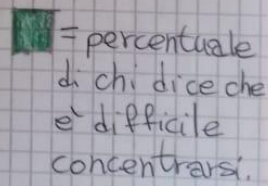 = percentuale
di chi dice che
e' difficile
concentrarsi.